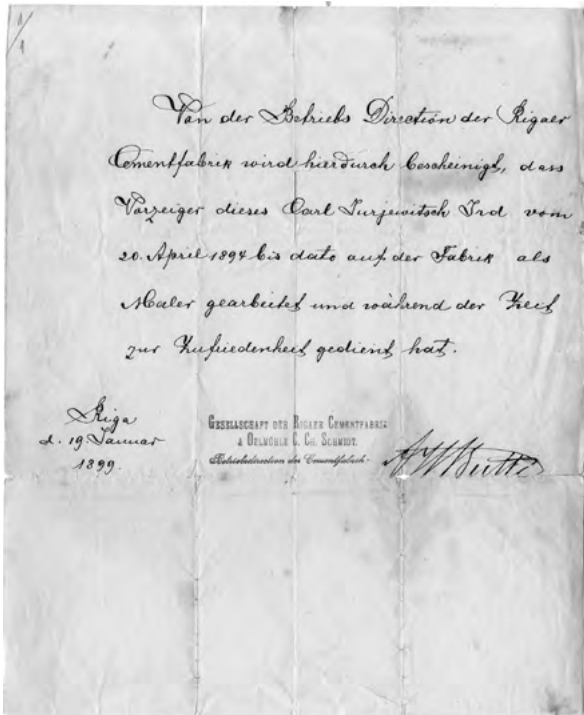 1/1
Von der Betriebs Direction der Rigaer
Cementfabrik wird hierdurch bescheinigt, dass
Vorzeiger dieses Carl Jurjewitsch Ird vom
20. April 1894 bis dato auf der Fabrik als
Maler gearbeitet und während der Zeit
zur Zufriedenheit gedient hat.
Riga
d. 19 Januar
1899.
GESELLSCHAFT DER RIGAER CEMENTFABRIK
& OELMÜHLE C. CH. SCHMIDT.
Betriebsdirection der Cementfabrik.